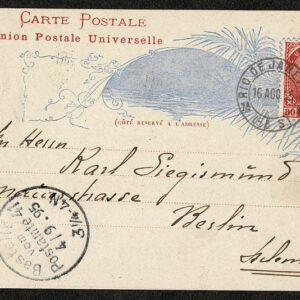 CARTE POSTALE
nion Postale Universelle
(CÔTÉ RESERVÉ A L'ADRESSE)
RIO DE JAN
16 AGO
n Herrn
Karl Siegismund
strasse
Berlin
Bestellt
vom
Postamte 41
4/9.95
N.